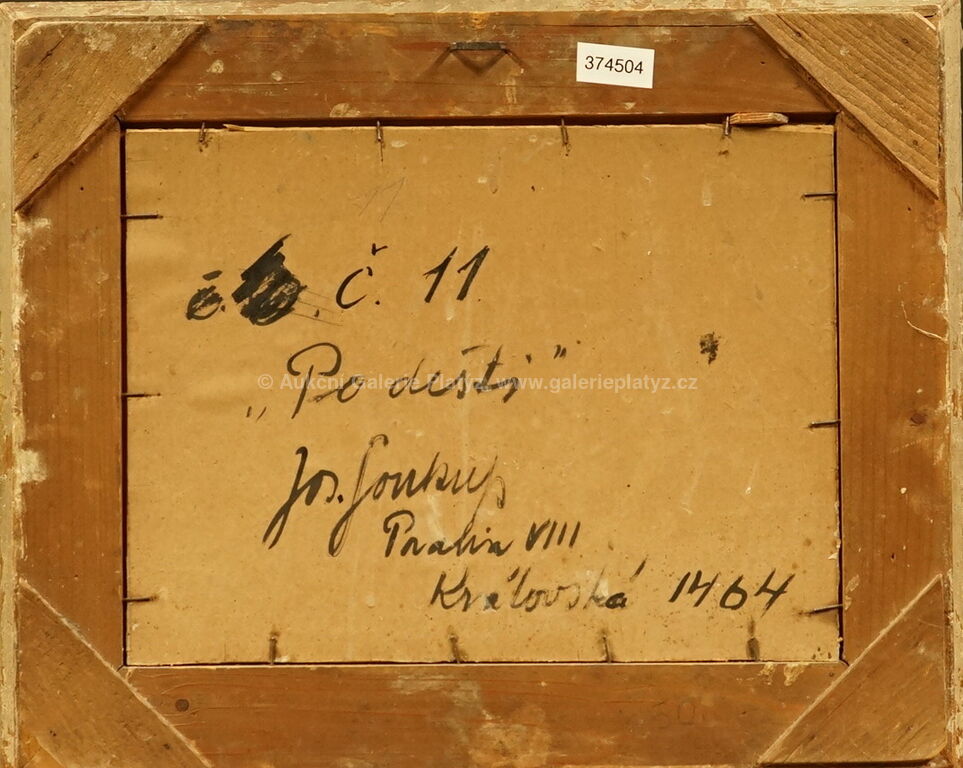 374504
č. č. 11
„Po dešti"
© Aukční Galerie Platýz, www.galerieplatyz.cz
Jos. Soukup
Praha VIII
Královská 1464